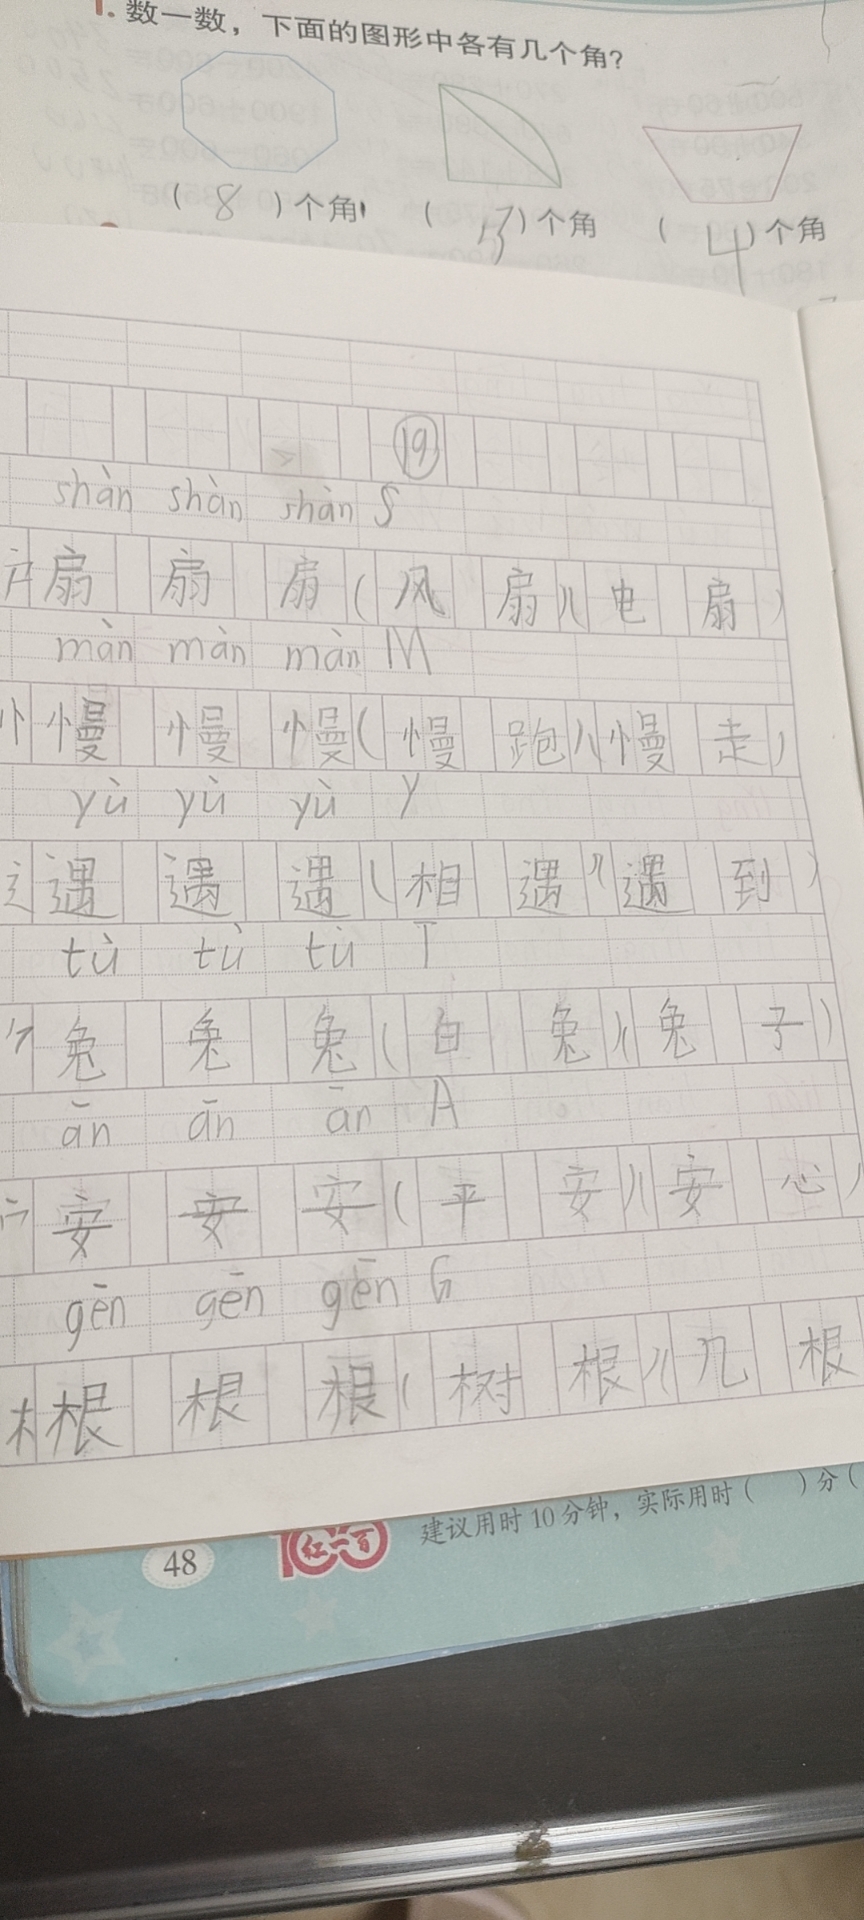 1. 数一数，下面的图形中各有几个角？
( 8 )个角 ( )个角 ( 4 )个角
⑲
shàn shàn shàn S
户 扇 扇 扇 ( 风 扇 )( 电 扇 )
màn màn màn M
忄 慢 慢 慢 ( 慢 跑 )( 慢 走 )
yù yù yù Y
辶 遇 遇 遇 ( 相 遇 )( 遇 到 )
tù tù tù T
⺈ 兔 兔 兔 ( 白 兔 )( 兔 子 )
ān ān ān A
宀 安 安 安 ( 平 安 )( 安 心 )
gēn gēn gēn G
木 根 根 根 ( 树 根 )( 几 根
48 红一百 建议用时10分钟，实际用时( )分(